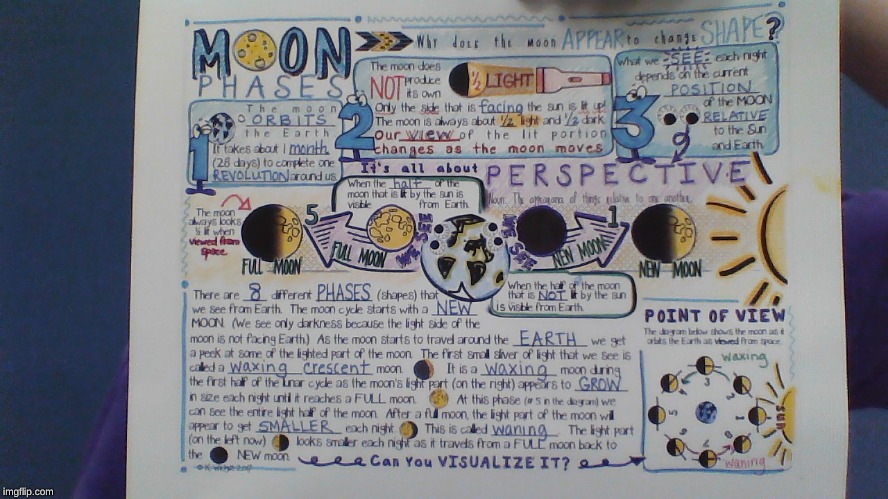 MOON
PHASES
Why does the moon APPEAR to change SHAPE?
1
The moon
ORBITS
the Earth
It takes about 1 month
(28 days) to complete one
REVOLUTION around us
2
The moon does
NOT produce
its own
½ LIGHT
Only the side that is facing the sun is lit up!
The moon is always about ½ light and ½ dark
Our view of the lit portion
changes as the moon moves
3
What we SEE each night
depends on the current
POSITION
of the MOON
RELATIVE
to the Sun
and Earth
It's all about PERSPECTIVE
Noun: The appearance of things relative to one another
The moon
always looks
½ lit when
viewed from
space.
FULL MOON
5
FULL MOON
When the half of the
moon that is lit by the sun is
visible from Earth.
WE SEE
WE SEE
1
NEW MOON
NEW MOON
When the half of the moon
that is NOT lit by the sun
is visible from Earth.
There are 8 different PHASES (shapes) that
we see from Earth. The moon cycle starts with a NEW
MOON. (We see only darkness because the light side of the
moon is not facing Earth.) As the moon starts to travel around the EARTH we get
a peek at some of the lighted part of the moon. The first small sliver of light that we see is
called a waxing crescent moon. It is a waxing moon during
the first half of the lunar cycle as the moon's light part (on the right) appears to GROW
in size each night until it reaches a FULL moon. At this phase (# 5 in the diagram) we
can see the entire light half of the moon. After a full moon, the light part of the moon will
appear to get SMALLER each night. This is called waning. The light part
(on the left now) looks smaller each night as it travels from a FULL moon back to
the NEW moon.
Can You VISUALIZE IT?
POINT OF VIEW
The diagram below shows the moon as it
orbits the Earth as viewed from space.
waxing
3
5
1
7
waning
SUN
imgflip.com